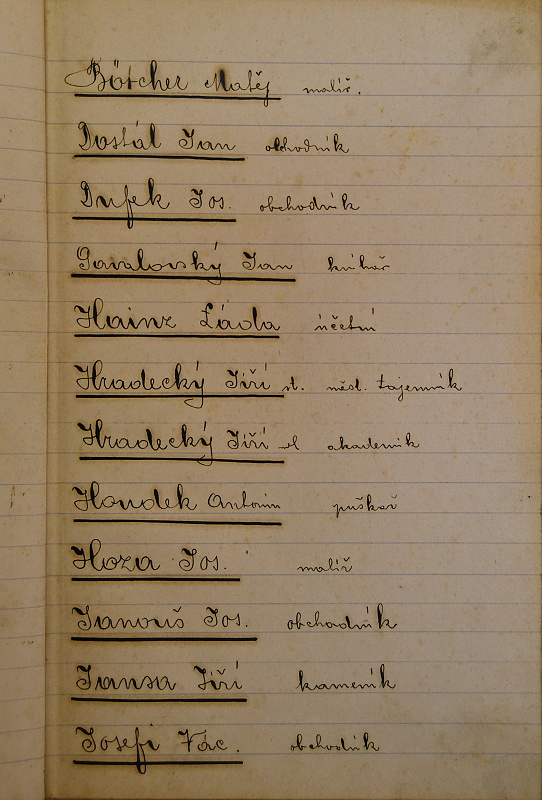 Bötcher Matěj malíř.
Dostál Jan obchodník
Dufek Jos. obchodník
Gavalovský Jan knihař
Hainz Láďa účetní
Hradecký Jiří st. měst. tajemník
Hradecký Jiří ml akademik
Houdek Antonín puškař
Hoza Jos. malíř
Janouš Jos. obchodník
Jansa Jiří kameník
Josefi Vác. obchodník